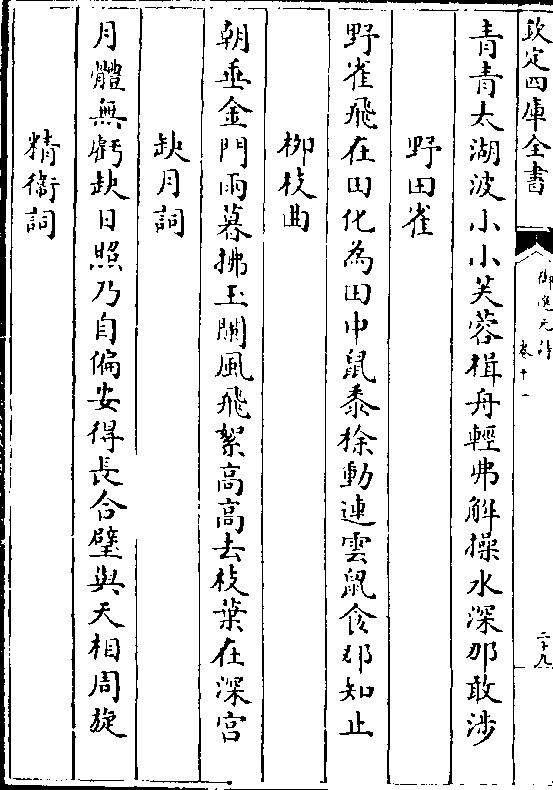 欽定四庫全書
御選元詩
卷十一
二十九
青青太湖波小小芙蓉楫舟輕弗解操水深那敢涉
野田雀
野雀飛在田化為田中鼠黍稌動連雲鼠食那知止
柳枝曲
朝垂金門雨暮拂玉闌風飛絮高高去枝葉在深宫
缺月詞
月體無虧缺日照乃自偏安得長合璧與天相周旋
精衞詞